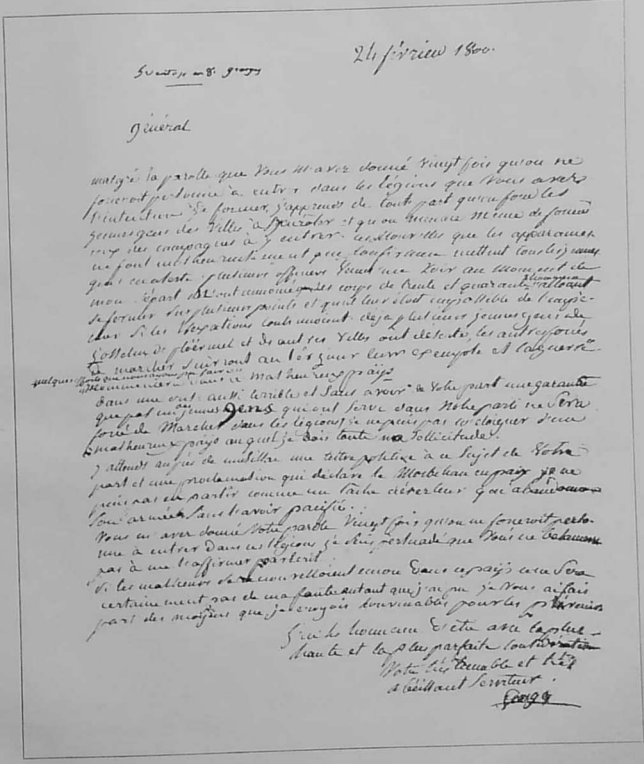 24 février 1800.
Général
malgré la parolle que vous m'avez donné vingt fois qu'on ne
forceroit personne à entrer dans les légions que vous avez
l'intention de former, j'apprends de toute part qu'on force les
jeunes gens des villes à et qu'on menace même de forcer
ceux des campagnes à y entrer. les nouvelles que les apparances
ne font malheureusement que confirmer mettent tous les jeunes
gens plusieurs officiers venus me voir au moment de
mon départ m'ont annoncé que des corps de trente et quarante
se former sur plusieurs points et qu'il leur étoit impossible de
si les vexations continuoient. déjà plusieurs jeunes gens de
Josselin de ploërmel et des autres villes ont déserté, les autres forcés
à marcher suivront leur exemple et la guerre
dans ce malheureux pays
dans une aussi terrible et sans avoir de votre part une garantie
que pas un des jeunes gens qui ont servé dans notre parti ne sera
forcé de marcher dans les légions, je ne puis pas m'éloigner d'un
malheureux pays auquel je dois toute ma sollicitude.
j'attends une lettre positive à ce sujet de votre
part et une proclamation qui déclare le Morbihan en paix je ne
puis pas en partir comme un lache déserteur qui abandonne
son armée sans l'avoir pacifié.
Vous m'avez donné votre parole vingt fois qu'on ne forceroit perso-
nne à entrer dans ces légions je suis persuadé que vous ne balancerez
pas à me l'affirmer par écrit.
si les malheurs se renouvelloient encore dans ce pays ce ne sera
certainement pas de ma faute autant que j'ai pu je vous ai fais
part des moyens que je croyois convenables pour les prévenir
J'ai l'honneur d'être avec la plus
haute et la plus parfaite considération
Votre très humble et très
obéissant serviteur.